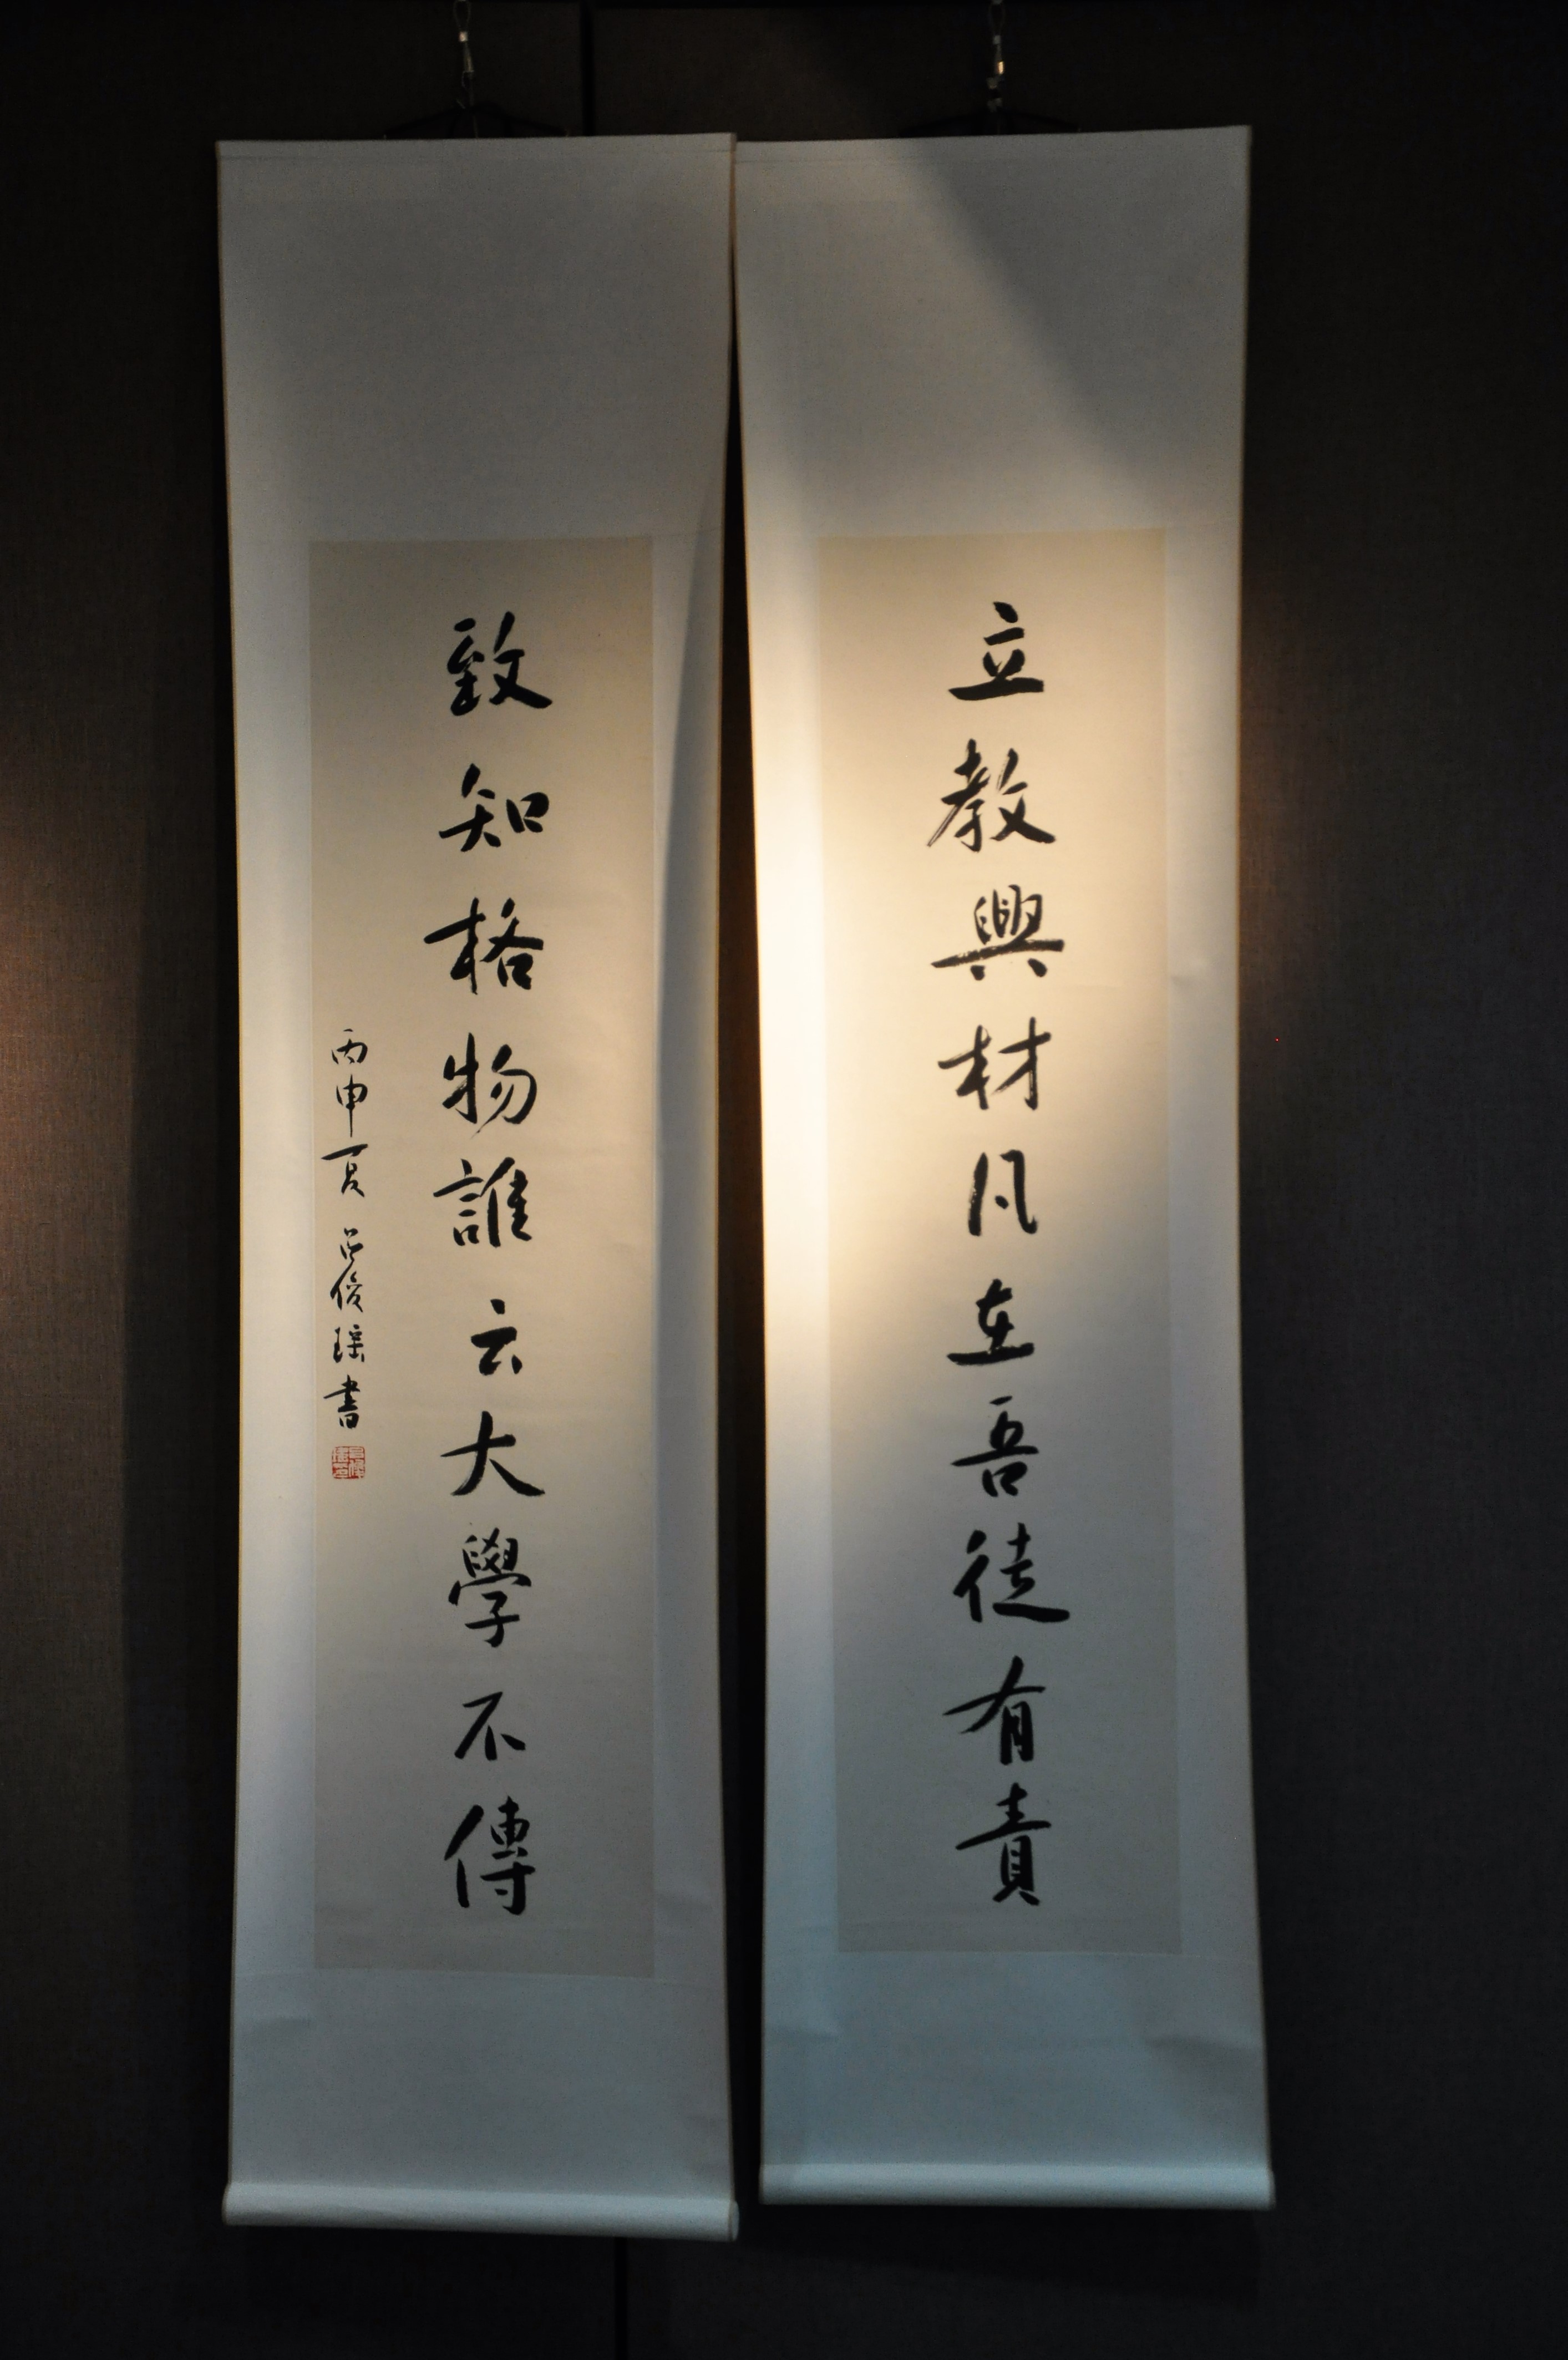 立教興材凡在吾徒有責
致知格物誰云大學不傳
丙申夏呂俊瑤書